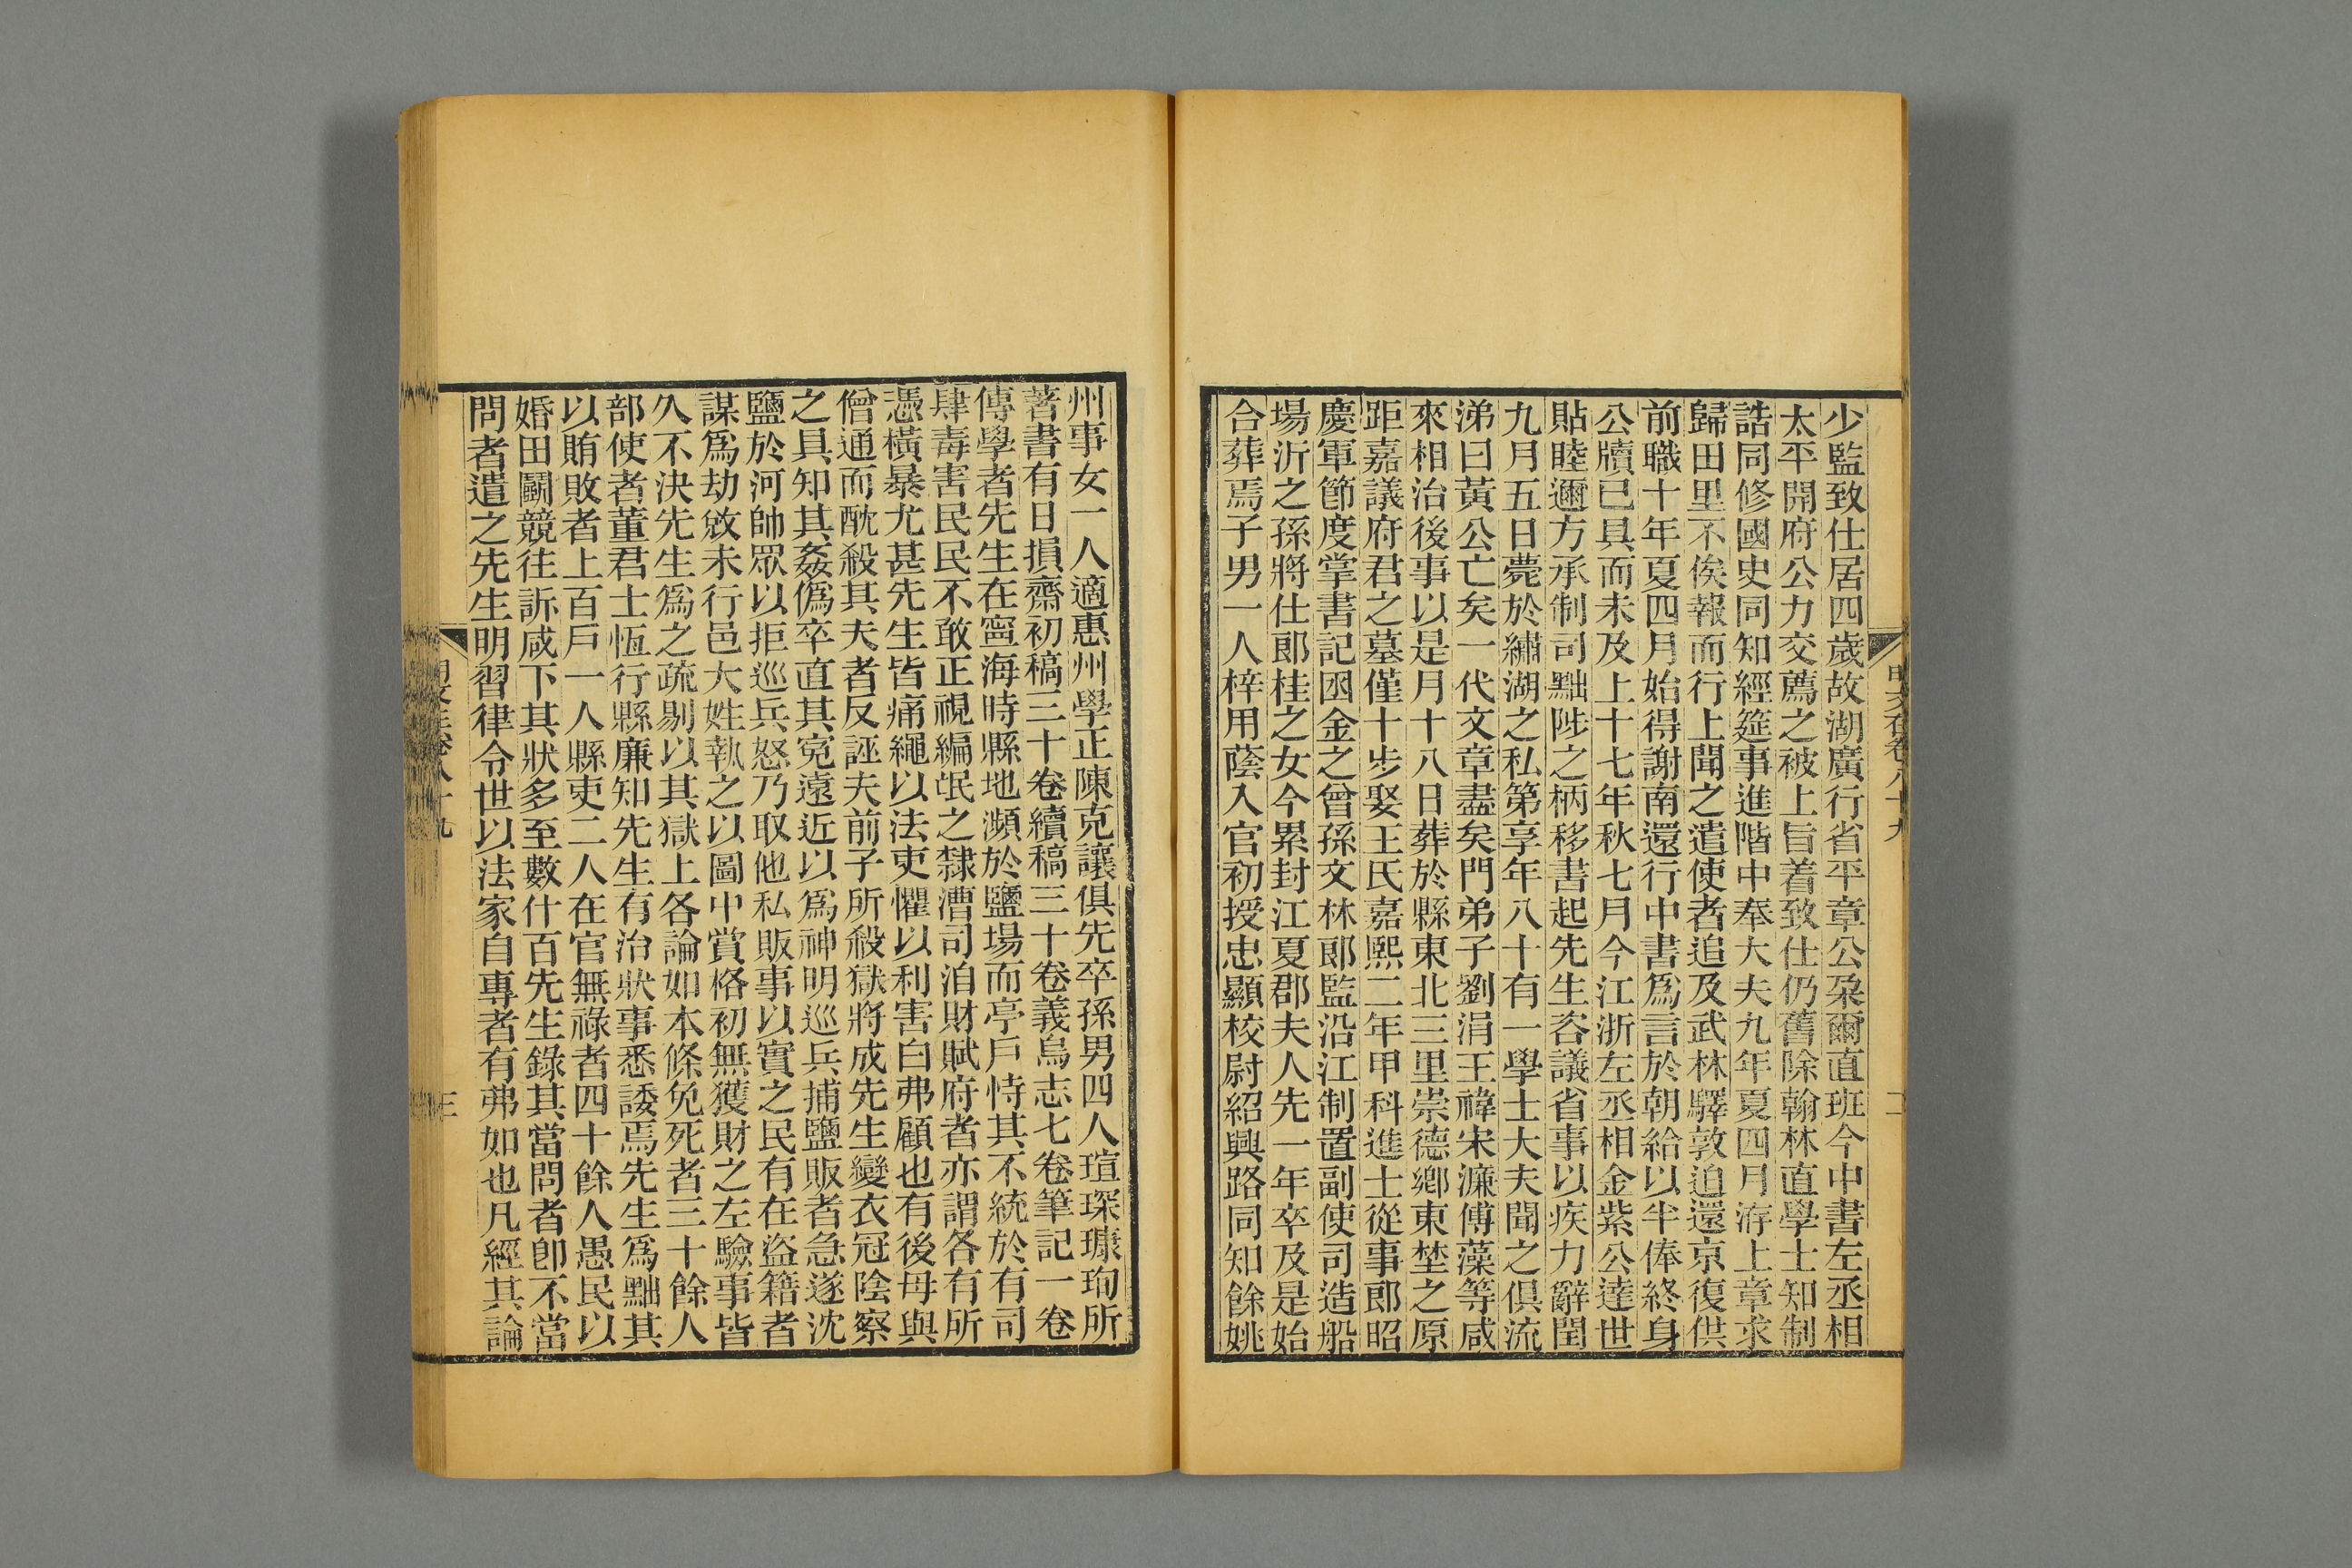 少監致仕居四歲故湖廣行省平章公朶爾直班今中書左丞相
太平開府公力交薦之被上旨着致仕仍舊除翰林直學士知制
誥同修國史同知經筵事進階中奉大夫九年夏四月洊上章求
歸田里不俟報而行上聞之遣使者追及武林驛敦迫還京復供
前職十年夏四月始得謝南還行中書爲言於朝給以半俸終身
公牘已具而未及上十七年秋七月今江浙左丞相金紫公達世
貼睦邇方承制司黜陟之柄移書起先生咨議省事以疾力辭閏
九月五日薨於繡湖之私第享年八十有一學士大夫聞之俱流
涕曰黃公亡矣一代文章盡矣門弟子劉涓王褘宋濂傅藻等咸
來相治後事以是月十八日葬於縣東北三里崇德鄉東埜之原
距嘉議府君之墓僅十步娶王氏嘉熙二年甲科進士從事郎昭
慶軍節度掌書記困金之曾孫文林郎監沿江制置副使司造船
場沂之孫將仕郎桂之女今累封江夏郡夫人先一年卒及是始
合葬焉子男一人梓用蔭入官初授忠顯校尉紹興路同知餘姚
州事女一人適惠州學正陳克讓俱先卒孫男四人瑄琛㻩珣所
著書有日損齋初稿三十卷續稿三十卷義烏志七卷筆記一卷
傳學者先生在寧海時縣地瀕於鹽場而亭戶恃其不統於有司
肆毒害民民不敢正視編氓之隸漕司泊財賦府者亦謂各有所
憑橫暴尤甚先生皆痛繩以法吏懼以利害白弗顧也有後母與
僧通而酖殺其夫者反誣夫前子所殺獄將成先生變衣冠陰察
之具知其姦僞卒直其冤遠近以爲神明巡兵捕鹽販者急遂沈
鹽於河帥眾以拒巡兵怒乃取他私販事以實之民有在盜籍者
謀爲劫敓未行邑大姓執之以圖中賞格初無獲財之左驗事皆
久不決先生爲之疏剔以其獄上各論如本條免死者三十餘人
部使者董君士恆行縣廉知先生有治狀事悉諉焉先生爲黜其
以賄敗者上百戶一人縣吏二人在官無祿者四十餘人愚民以
婚田鬭競往訴咸下其狀多至數什百先生錄其當問者卽不當
問者遣之先生明習律令世以法家自專者有弗如也凡經其論
三